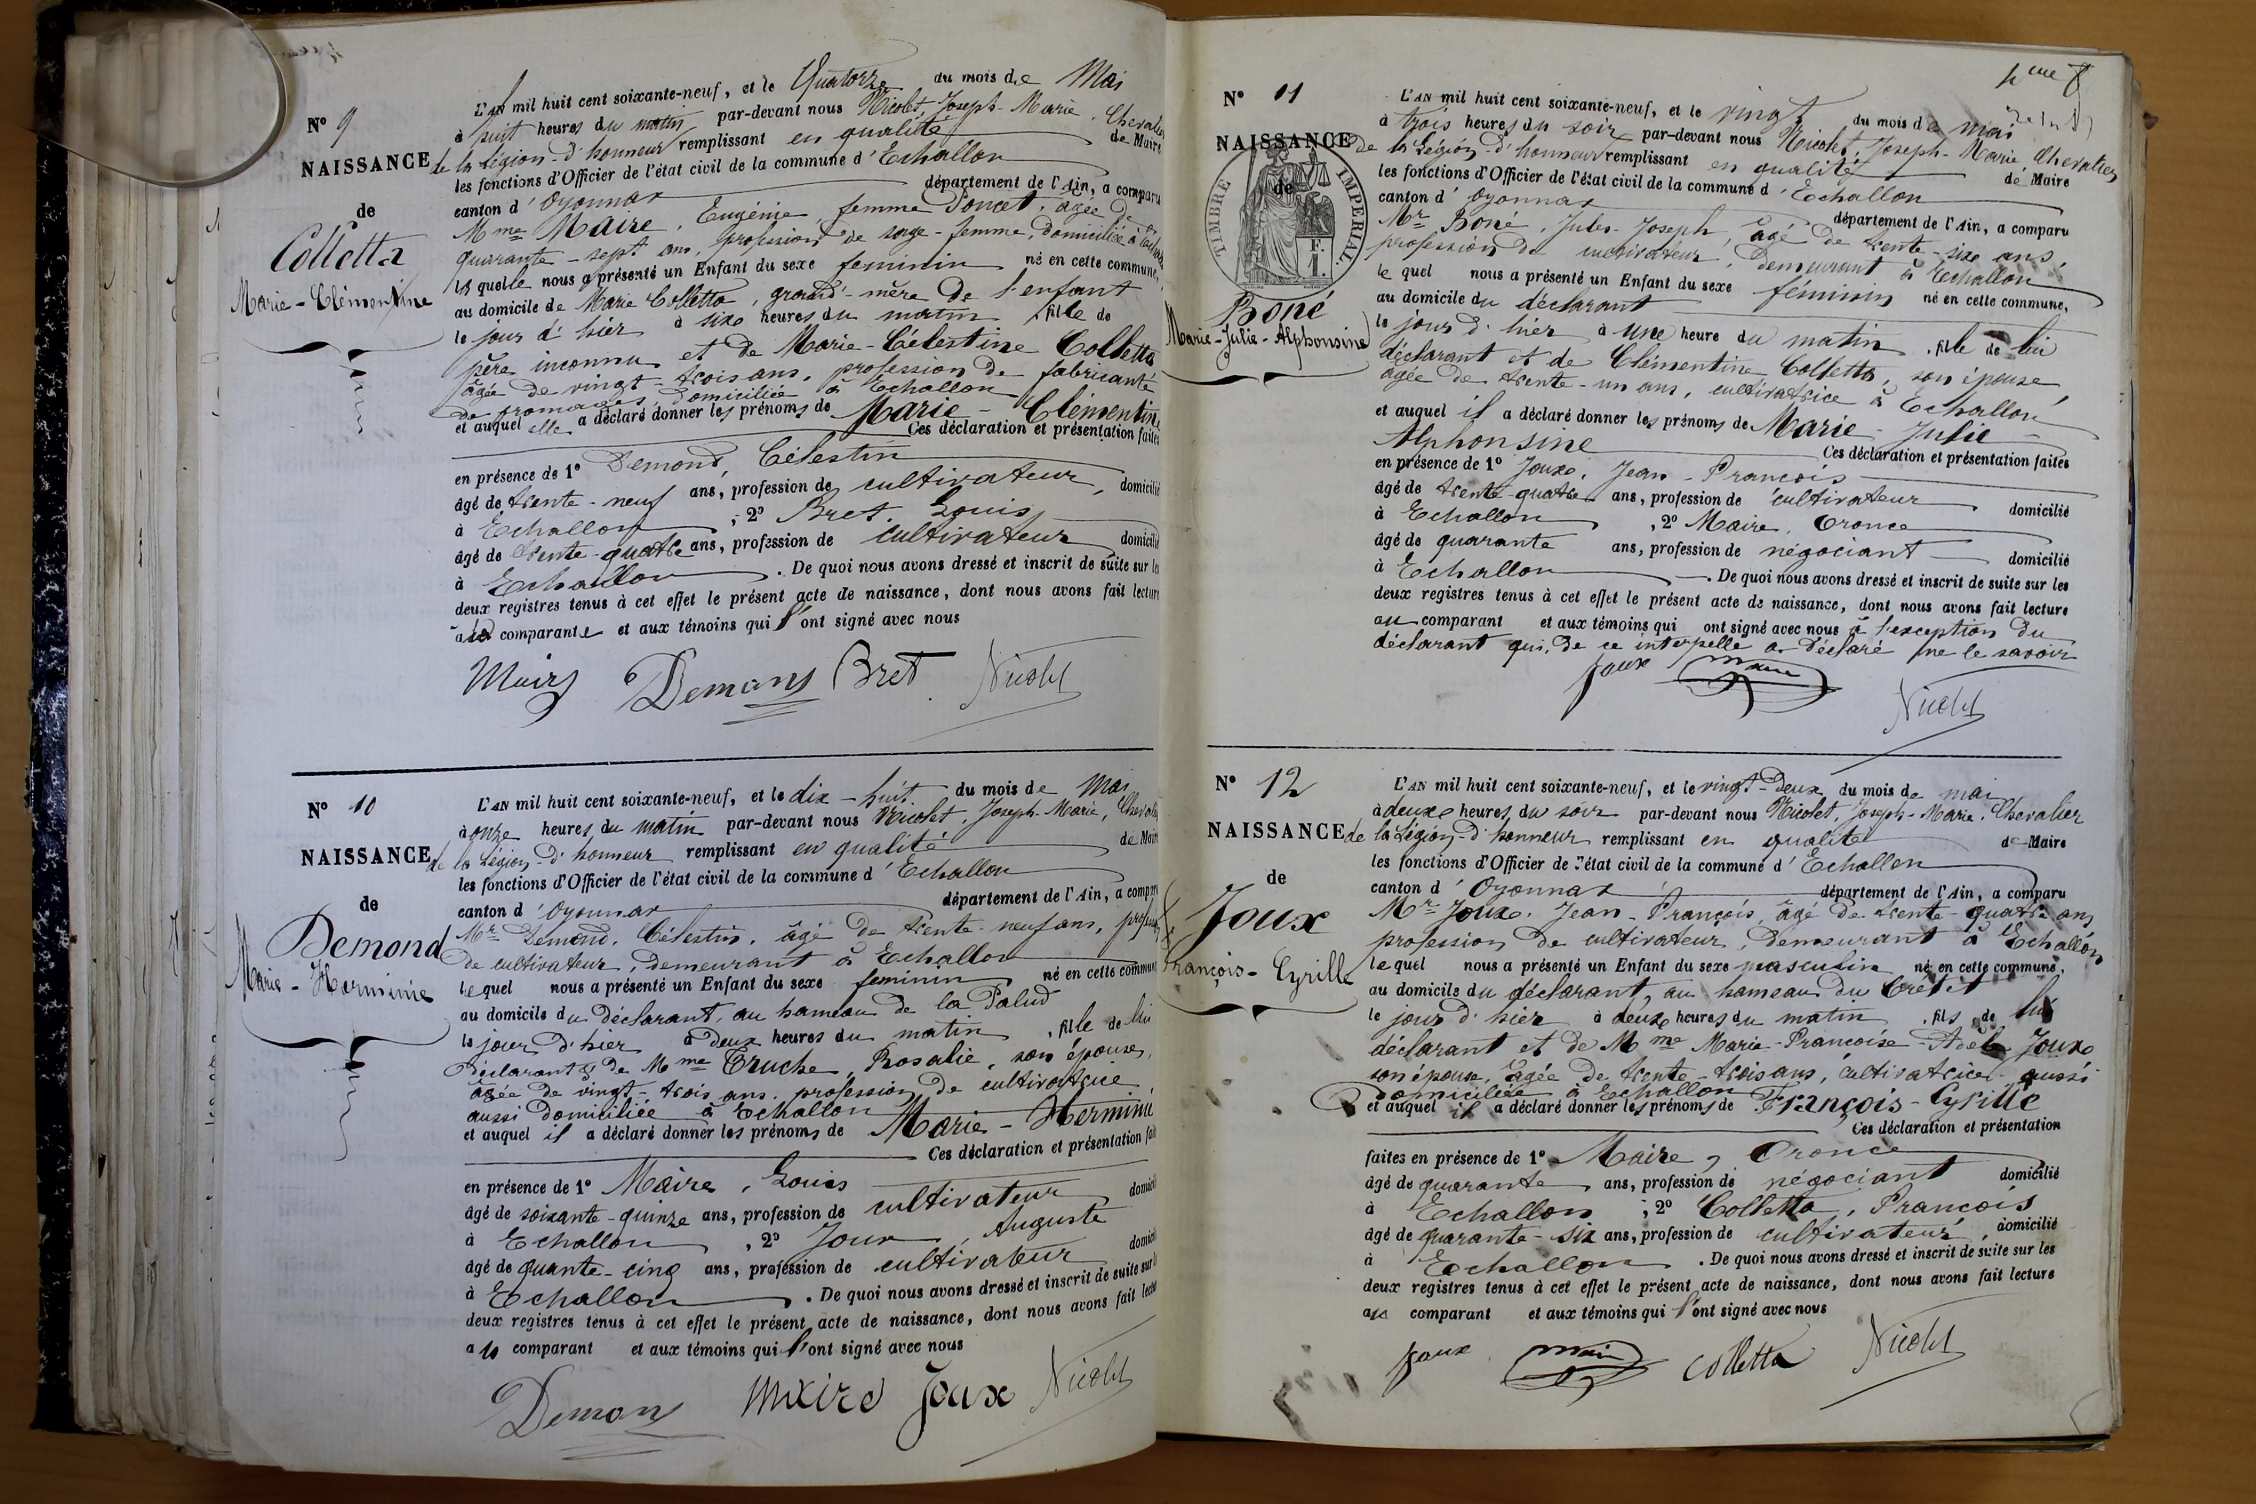 N° 9
NAISSANCE
de
Colletta
Marie-Clémentine
L'AN mil huit cent soixante-neuf, et le Quatorze du mois de Mai
à huit heures du matin par-devant nous Nicolet, Joseph-Marie, Chevalier
de la Légion-d'honneur remplissant en qualité de Maire
les fonctions d'Officier de l'état civil de la commune d'Echallon
canton d'Oyonnax département de l'Ain, a comparu
Mme Maire, Eugénie, femme Poncet, agée de
quarante-sept ans, profession de sage-femme, domiciliée à
la quelle nous a présenté un Enfant du sexe feminin né en cette commune,
au domicile de Marie Colletta, grand'-mère de l'enfant
le jour d'hier à six heures du matin fille de
père inconnu et de Marie-Célestine Colletta
âgée de vingt-trois ans, profession de fabricante
de fromages, domiciliée à Echallon
et auquel elle a déclaré donner les prénoms de Marie-Clémentine
Ces déclaration et présentation faites
en présence de 1° Demond, Célestin
âgé de trente-neuf ans, profession de cultivateur, domicilié
à Echallon, 2° Bret, Louis
âgé de trente-quatre ans, profession de cultivateur domicilié
à Echallon. De quoi nous avons dressé et inscrit de suite sur les
deux registres tenus à cet effet le présent acte de naissance, dont nous avons fait lecture
à la comparante et aux témoins qui l'ont signé avec nous
Maire Demond Bret Nicolet
N° 10
NAISSANCE
de
Demond
Marie-Herminie
L'AN mil huit cent soixante-neuf, et le dix-huit du mois de Mai
à onze heures du matin par-devant nous Nicolet, Joseph-Marie, Chevalier
de la Légion-d'honneur remplissant en qualité de Maire
les fonctions d'Officier de l'état civil de la commune d'Echallon
canton d'Oyonnax département de l'Ain, a comparu
Mr Demond, Célestin, âgé de trente-neuf ans, profession
de cultivateur, demeurant à Echallon
le quel nous a présenté un Enfant du sexe feminin né en cette commune
au domicile du déclarant, au hameau de la Palud
le jour d'hier à deux heures du matin, fille de lui
déclarant & de Mme Truche, Rosalie, son épouse,
âgée de vingt-trois ans, profession de cultivatrice,
aussi domiciliée à Echallon
et auquel il a déclaré donner les prénoms de Marie-Herminie
Ces déclaration et présentation faites
en présence de 1° Maire, Louis
âgé de soixante-quinze ans, profession de cultivateur domicilié
à Echallon, 2° Joux, Auguste
âgé de quante-cinq ans, profession de cultivateur domicilié
à Echallon. De quoi nous avons dressé et inscrit de suite sur les
deux registres tenus à cet effet le présent acte de naissance, dont nous avons fait lecture
au comparant et aux témoins qui l'ont signé avec nous
Demond Maire Joux Nicolet
N° 11
NAISSANCE
de
TIMBRE IMPERIAL
F.
1.
Boné
Marie-Julie-Alphonsine
L'AN mil huit cent soixante-neuf, et le vingt du mois de mai
à trois heures du soir par-devant nous Nicolet, Joseph-Marie, Chevalier
de la Légion-d'honneur remplissant en qualité de Maire
les fonctions d'Officier de l'état civil de la commune d'Echallon
canton d'Oyonnax département de l'Ain, a comparu
Mr Boné, Jules-Joseph, âgé de trente-six ans,
profession de cultivateur, demeurant à Echallon
le quel nous a présenté un Enfant du sexe féminin né en cette commune,
au domicile du déclarant
le jour d'hier à une heure du matin, fille de lui
déclarant et de Clémentine Colletta, son épouse,
âgée de trente-un ans, cultivatrice à Echallon
et auquel il a déclaré donner les prénoms de Marie-Julie-
Alphonsine Ces déclaration et présentation faites
en présence de 1° Joux, Jean-François
âgé de trente-quatre ans, profession de cultivateur domicilié
à Echallon, 2° Maire, Oronce
âgé de quarante ans, profession de négociant domicilié
à Echallon. De quoi nous avons dressé et inscrit de suite sur les
deux registres tenus à cet effet le présent acte de naissance, dont nous avons fait lecture
au comparant et aux témoins qui ont signé avec nous à l'exception du
déclarant qui, de ce interpellé a déclaré ne le savoir
Joux Maire
Nicolet
N° 12
NAISSANCE
de
Joux
François-Cyrille
L'AN mil huit cent soixante-neuf, et le vingt-deux du mois de mai
à deux heures du soir par-devant nous Nicolet, Joseph-Marie, Chevalier
de la Légion-d'honneur remplissant en qualité de Maire
les fonctions d'Officier de l'état civil de la commune d'Echallon
canton d'Oyonnax département de l'Ain, a comparu
Mr Joux, Jean-François, âgé de trente-quatre ans
profession de cultivateur, demeurant à Echallon
le quel nous a présenté un Enfant du sexe masculin né en cette commune,
au domicile du déclarant, au hameau du Crétet
le jour d'hier à deux heures du matin, fils de lui
déclarant et de Mme Marie-Françoise-Adèle Joux
son épouse, âgée de trente-trois ans, cultivatrice aussi
domiciliée à Echallon
et auquel il a déclaré donner les prénoms de François-Cyrille
Ces déclaration et présentation
faites en présence de 1° Maire, Oronce
âgé de quarante ans, profession de négociant domicilié
à Echallon, 2° Colletta, François
âgé de quarante-six ans, profession de cultivateur, domicilié
à Echallon. De quoi nous avons dressé et inscrit de suite sur les
deux registres tenus à cet effet le présent acte de naissance, dont nous avons fait lecture
au comparant et aux témoins qui l'ont signé avec nous
Joux Maire Colletta Nicolet